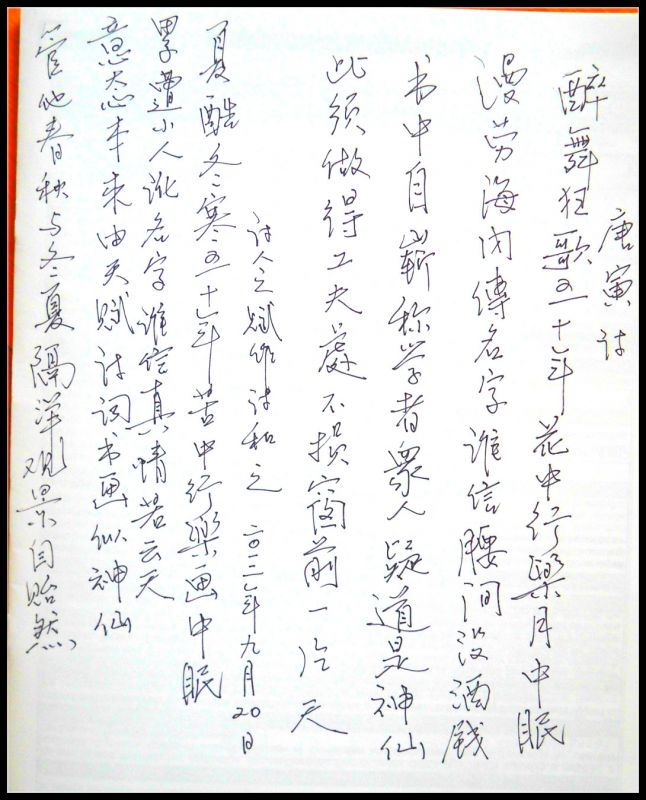 唐寅诗
醉舞狂歌五十年花中行樂月中眠
漫劳海内傳名字谁信腰间没酒钱
书中自嶄称学者衆人疑道是神仙
此须做得工夫處不损窗前一片天
诗人之赋作诗和之 二〇一二年九月20日
夏酷冬寒五十年苦中行樂画中眠
累遭小人讹名字谁信真情若云天
意态本来由天赋诗词书画似神仙
管他春秋与冬夏隔洋观景自贻然